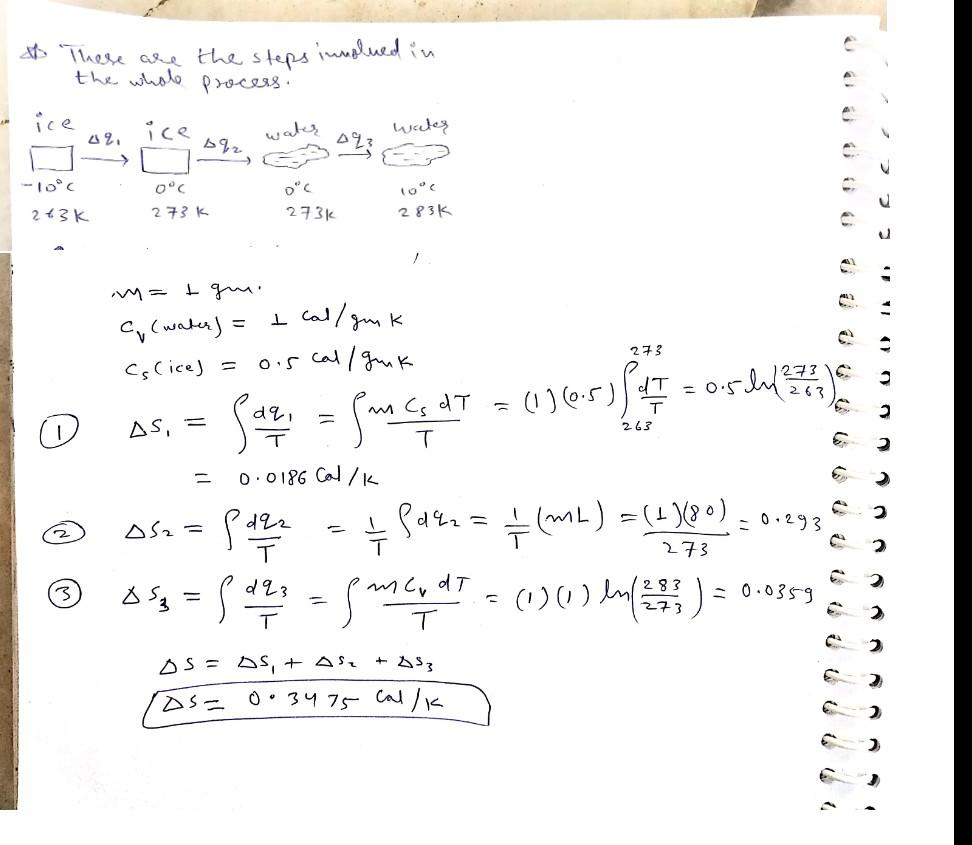 These are the steps involved in
the whole process.
ice Δq₁ ice Δq₂ water Δq₃ water
-10°C 0°C 0°C 10°C
263K 273K 273K 283K
m = 1 gm.
Cᵥ(water) = 1 Cal/gm K
Cₛ(ice) = 0.5 cal/gm K
① ΔS₁ = ∫dq₁/T = ∫m Cₛ dT/T = (1)(0.5) ∫₂₆₃²⁷³ dT/T = 0.5 ln(273/263)
= 0.0186 Cal/K
② ΔS₂ = ∫dq₂/T = 1/T ∫dq₂ = 1/T (mL) = (1)(80)/273 = 0.293
③ ΔS₃ = ∫dq₃/T = ∫m Cᵥ dT/T = (1)(1) ln(283/273) = 0.0359
ΔS = ΔS₁ + ΔS₂ + ΔS₃
ΔS = 0.3475 Cal/K